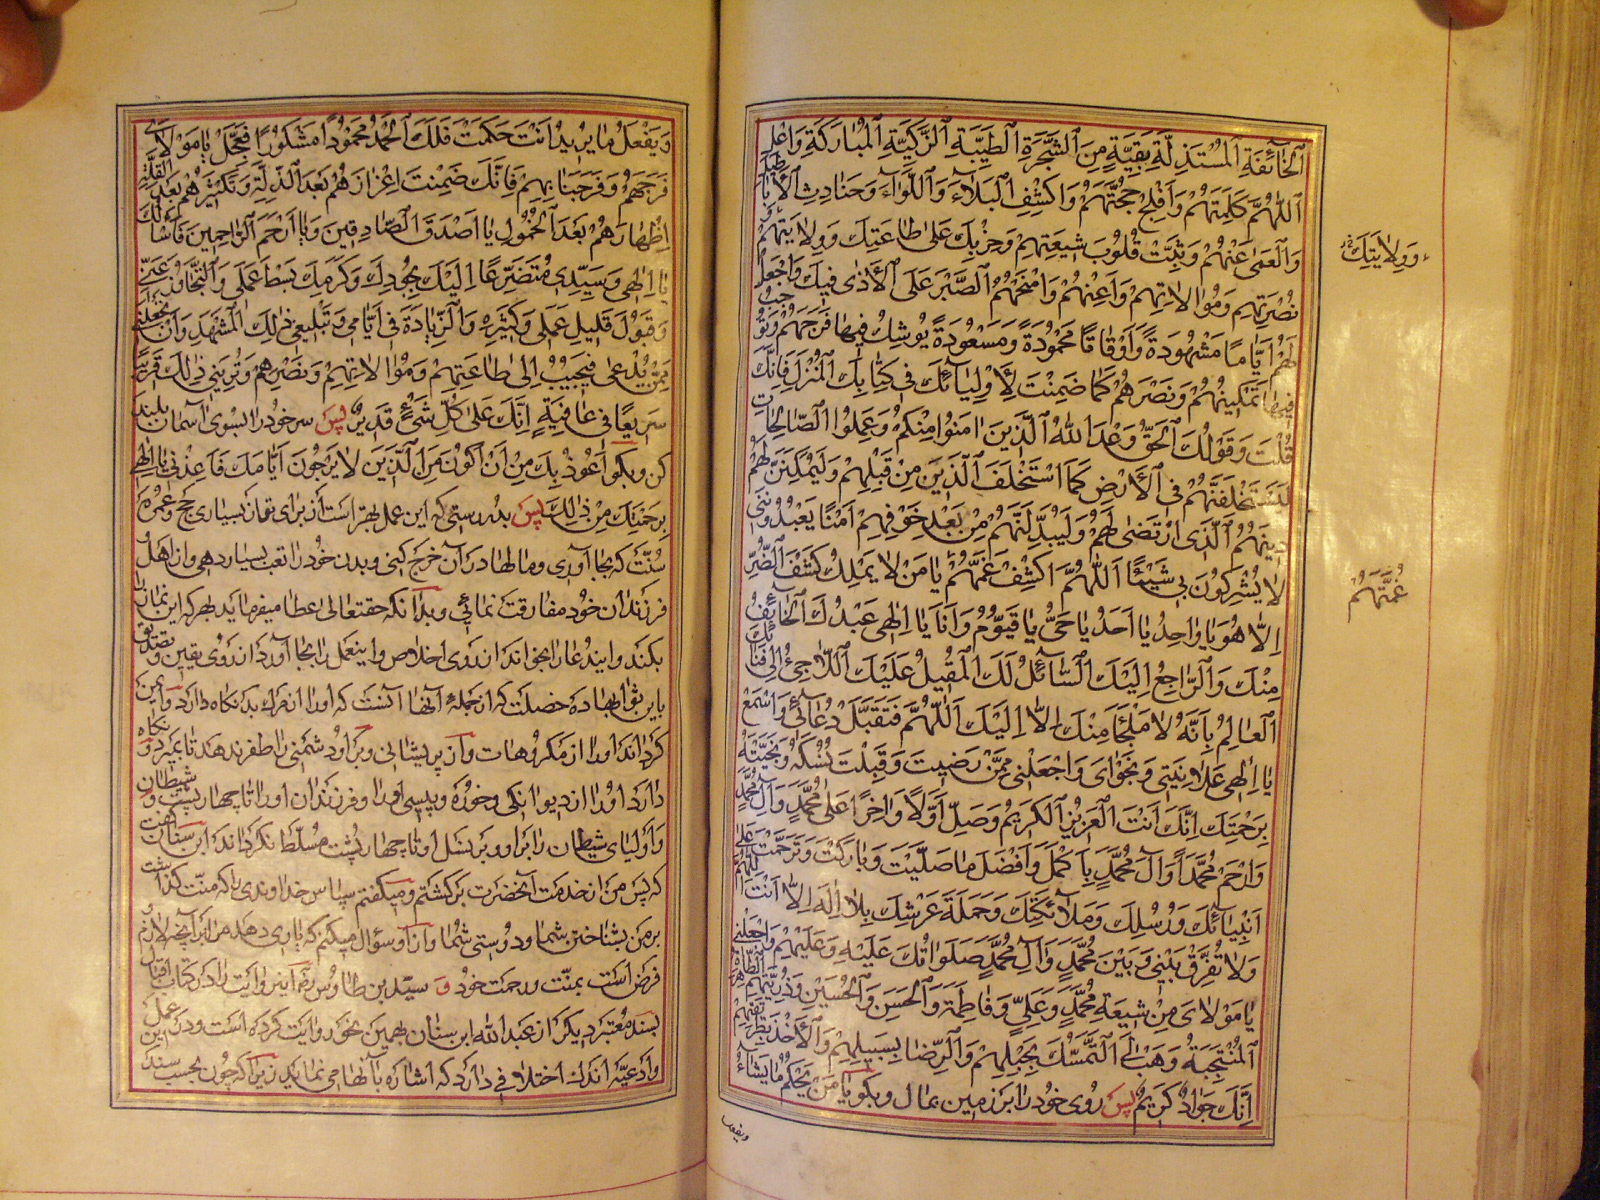 الْخَائِفَةِ الْمُسْتَذِلَّةِ بَقِيَّةٍ مِنَ الشَّجَرَةِ الطَّيِّبَةِ الزَّكِيَّةِ الْمُبَارَكَةِ وَاعْلِ
اَللّٰهُمَّ كَلِمَتَهُمْ وَاَفْلِجْ حُجَّتَهُمْ وَاكْشِفِ الْبَلَاءَ وَاللَّأْوَاءَ وَحَنَادِسَ الْاَبَاطِيلِ
وَالْعَمٰى عَنْهُمْ وَثَبِّتْ قُلُوبَ شِيعَتِهِمْ وَحِزْبِكَ عَلٰى طَاعَتِكَ وَوِلَايَتِهِمْ وَ
نُصْرَتِهِمْ وَمُوَالَاتِهِمْ وَاَعِنْهُمْ وَامْنَحْهُمُ الصَّبْرَ عَلَى الْاَذٰى فِيكَ وَاجْعَلْ
لَهُمْ اَيَّامًا مَشْهُودَةً وَاَوْقَاتًا مَحْمُودَةً وَمَسْعُودَةً يُوشِكُ فِيهَا فَرَجُهُمْ وَتُوجِبُ
فِيهَا تَمْكِينَهُمْ وَنَصْرَهُمْ كَمَا ضَمِنْتَ لِاَوْلِيَائِكَ فِي كِتَابِكَ الْمُنْزَلِ فَاِنَّكَ
قُلْتَ وَقَوْلُكَ الْحَقُّ وَعَدَ اللّٰهُ الَّذِينَ اٰمَنُوا مِنْكُمْ وَعَمِلُوا الصَّالِحَاتِ
لَيَسْتَخْلِفَنَّهُمْ فِي الْاَرْضِ كَمَا اسْتَخْلَفَ الَّذِينَ مِنْ قَبْلِهِمْ وَلَيُمَكِّنَنَّ لَهُمْ
دِينَهُمُ الَّذِي ارْتَضٰى لَهُمْ وَلَيُبَدِّلَنَّهُمْ مِنْ بَعْدِ خَوْفِهِمْ اَمْنًا يَعْبُدُونَنِي
لَا يُشْرِكُونَ بِي شَيْئًا اَللّٰهُمَّ اكْشِفْ غَمَّهُمْ يَا مَنْ لَا يَمْلِكُ كَشْفَ الضُّرِّ
اِلَّا هُوَ يَا وَاحِدُ يَا اَحَدُ يَا حَيُّ يَا قَيُّومُ وَاَنَا يَا اِلٰهِي عَبْدُكَ الْخَائِفُ
مِنْكَ وَالرَّاجِعُ اِلَيْكَ السَّائِلُ لَكَ الْمُقْبِلُ عَلَيْكَ اللَّاجِئُ اِلٰى فِنَائِكَ
الْعَالِمُ بِاَنَّهُ لَا مَلْجَأَ مِنْكَ اِلَّا اِلَيْكَ اَللّٰهُمَّ فَتَقَبَّلْ دُعَائِي وَاسْمَعْ
يَا اِلٰهِي عَلَانِيَتِي وَنَجْوَايَ وَاجْعَلْنِي مِمَّنْ رَضِيتَ وَقَبِلْتَ نُسُكَهُ وَنَجَّيْتَهُ
بِرَحْمَتِكَ اِنَّكَ اَنْتَ الْعَزِيزُ الْكَرِيمُ وَصَلِّ اَوَّلًا وَاٰخِرًا عَلٰى مُحَمَّدٍ وَاٰلِ مُحَمَّدٍ
وَارْحَمْ مُحَمَّدًا وَاٰلَ مُحَمَّدٍ بِاَكْمَلِ وَاَفْضَلِ مَا صَلَّيْتَ وَبَارَكْتَ وَتَرَحَّمْتَ عَلٰى
اَنْبِيَائِكَ وَرُسُلِكَ وَمَلَائِكَتِكَ وَحَمَلَةِ عَرْشِكَ بِلَا اِلٰهَ اِلَّا اَنْتَ اللّٰهُمَّ
وَلَا تُفَرِّقْ بَيْنِي وَبَيْنَ مُحَمَّدٍ وَاٰلِ مُحَمَّدٍ صَلَوَاتُكَ عَلَيْهِ وَعَلَيْهِمْ وَاجْعَلْنِي
يَا مَوْلَايَ مِنْ شِيعَةِ مُحَمَّدٍ وَعَلِيٍّ وَفَاطِمَةَ وَالْحَسَنِ وَالْحُسَيْنِ وَذُرِّيَّتِهِمُ الطَّاهِرَةِ
الْمُنْتَجَبَةِ وَهَبْ لِيَ التَّمَسُّكَ بِحَبْلِهِمْ وَالرِّضَا بِسَبِيلِهِمْ وَالْاَخْذَ بِطَرِيقَتِهِمْ
اِنَّكَ جَوَادٌ كَرِيمٌ پس روی خود را بر زمین بمال و بگو یَا مَنْ یَحْکُمُ مَا یَشَاءُ
وَوِلَايَتِكَ
غُمَّتَهُمْ
ویفعل
وَ يَفْعَلُ مَا يُرِيدُ اَنْتَ حَكَمْتَ فَلَكَ الْحَمْدُ مَحْمُودًا مَشْكُورًا فَعَجِّلْ يَا مَوْلَايَ
فَرَجَهُمْ وَفَرَجَنَا بِهِمْ فَاِنَّكَ ضَمِنْتَ اِعْزَازَهُمْ بَعْدَ الذِّلَّةِ وَتَكْثِيرَهُمْ بَعْدَ الْقِلَّةِ وَ
اِظْهَارَهُمْ بَعْدَ الْخُمُولِ يَا اَصْدَقَ الصَّادِقِينَ وَيَا اَرْحَمَ الرَّاحِمِينَ فَاَسْأَلُكَ
يَا اِلٰهِي وَسَيِّدِي مُتَضَرِّعًا اِلَيْكَ بِجُودِكَ وَكَرَمِكَ بَسْطَ عَمَلِي وَالتَّجَاوُزَ عَنِّي
وَقَبُولَ قَلِيلِ عَمَلِي وَكَثِيرِهِ وَالزِّيَادَةَ فِي اَيَّامِي وَتَبْلِيغِي ذٰلِكَ الْمَشْهَدَ وَاَنْ تَجْعَلَنِي
مِمَّنْ يُدْعٰى فَيُجِيبُ اِلٰى طَاعَتِهِمْ وَمُوَالَاتِهِمْ وَنَصْرِهِمْ وَتُرِيَنِي ذٰلِكَ قَرِيبًا
سَرِيعًا فِي عَافِيَةٍ اِنَّكَ عَلٰى كُلِّ شَيْءٍ قَدِيرٌ پس سر خود را بسوی آسمان بلند
کن و بگو اَعُوذُ بِكَ مِنْ اَنْ اَكُونَ مِنَ الَّذِينَ لَا يَرْجُونَ اَيَّامَكَ فَاَعِذْنِي يَا اِلٰهِي
بِرَحْمَتِكَ مِنْ ذٰلِكَ پس بدرستی که این عمل بهتر است از برای تو از بسیاری حج و عمرهٔ
سنّت که بجا آوری و مالها در آن خرج کنی و بدن خود را تعب بسیار دهی و از اهل و
فرزندان خود مفارقت نمائی و بدانکه حقتعالی عطا میفرماید بهر که این نماز را
بکند و ایندعا را بخواند از روی اخلاص و اینعمل را بجا آورد از روی یقین و تصدیق
باین ثوابها ده خصلت که از جملهٔ آنها آنست که او را از مرگ بد نگاه دارد و ایمن
گرداند او را از مکروهات و از پریشانی و بر او دشمنی را ظفر ندهد تا بمیرد و نگاه
دارد او را از دیوانگی و خوره و پیسی او را و فرزندان او را تا چهار پشت و شیطان
و اولیای شیطان را بر او و بر نسل او تا چهار پشت مسلط نگرداند ابن سنان گفت
که پس من از خدمت آنحضرت برگشتم و میگفتم سپاس خداوندی را که منّت گذاشت
بر من بشناختن شما و دوستی شما و از او سؤال میکنم که یاری دهد مرا بر آنچه لازم و
فرض است بمنّت و رحمت خود و سیّد بن طاوس رَه این روایت را در کتاب اقبال
بسند معتبر دیگر از عبد الله ابن سنان بهمین نحو روایت کرده است و در این عمل
و ادعیه اندک اختلافی دارد که اشاره بآنها می نمائیم زیرا که چون بحسب سند